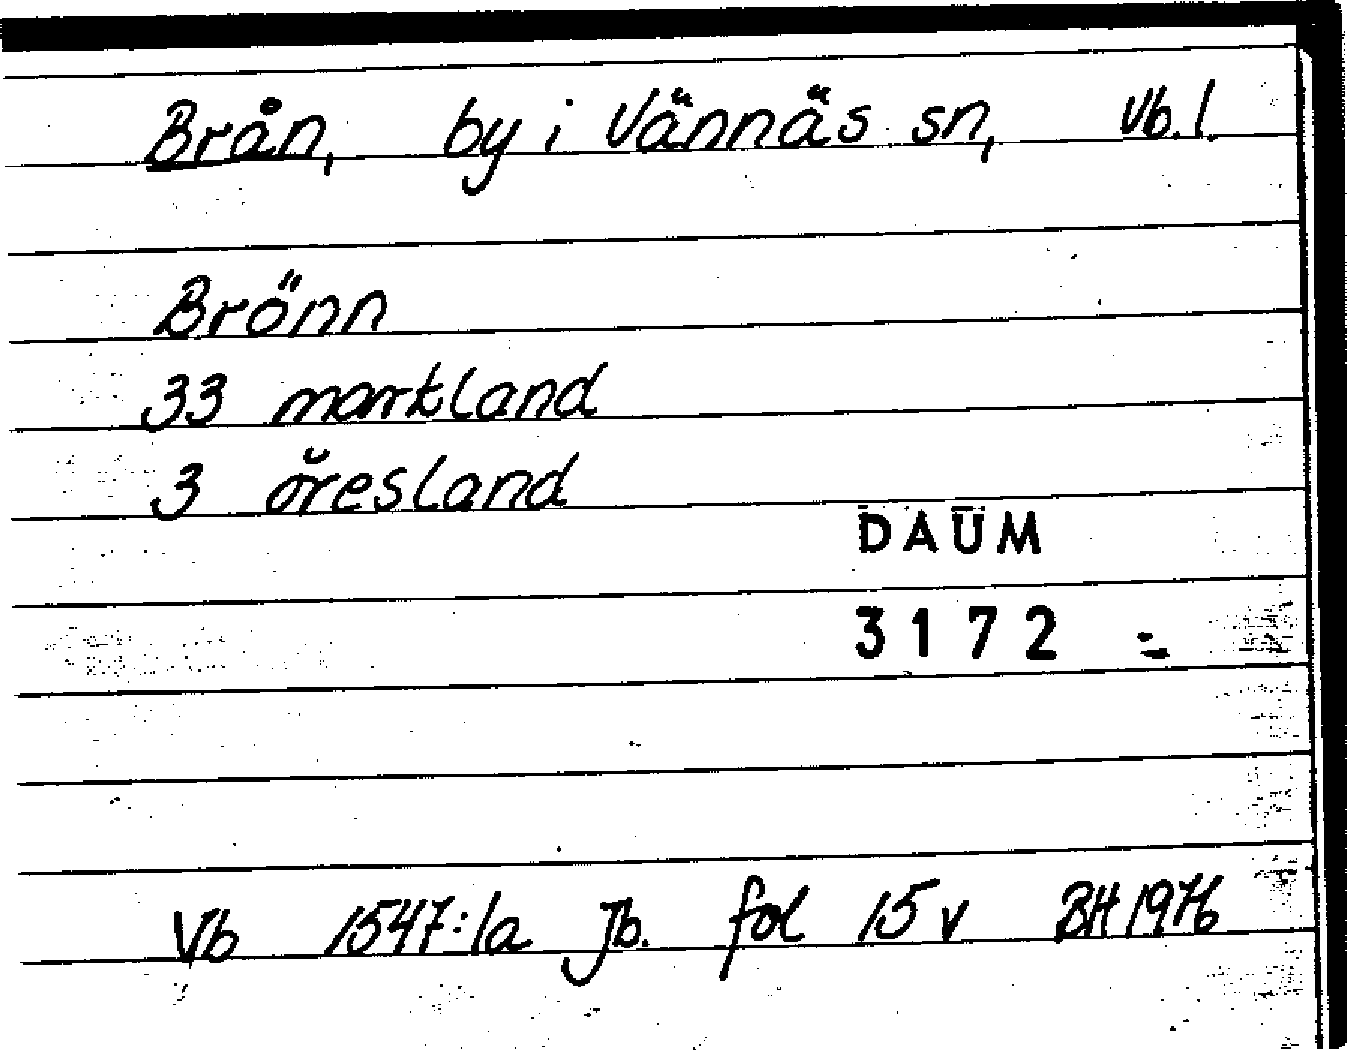 Brån, by i Vännäs sn, Vb. l.
Brönn
33 markland
3 öresland
DAUM
3172
Vb 1547:1a Jb. fol 15 v BH 1976